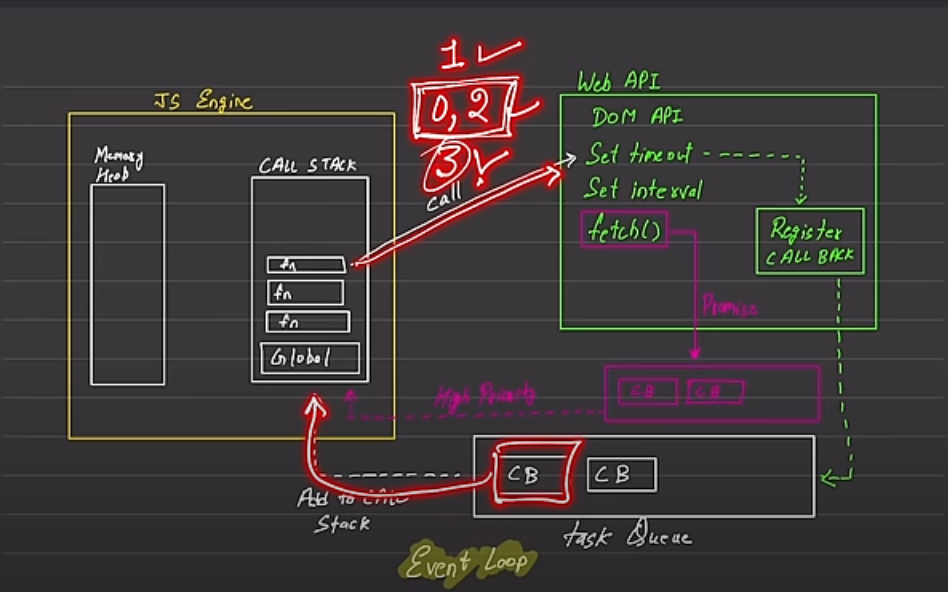 1
0, 2
3
JS Engine
Memory
Heab
CALL STACK
fn
fn
fn
Global
call
Web API
DOM API
Set timeout
Set interval
fetch()
Register
CALL BACK
Promise
CB CB
High Priority
CB CB
Add to
Stack
task Queue
Event Loop